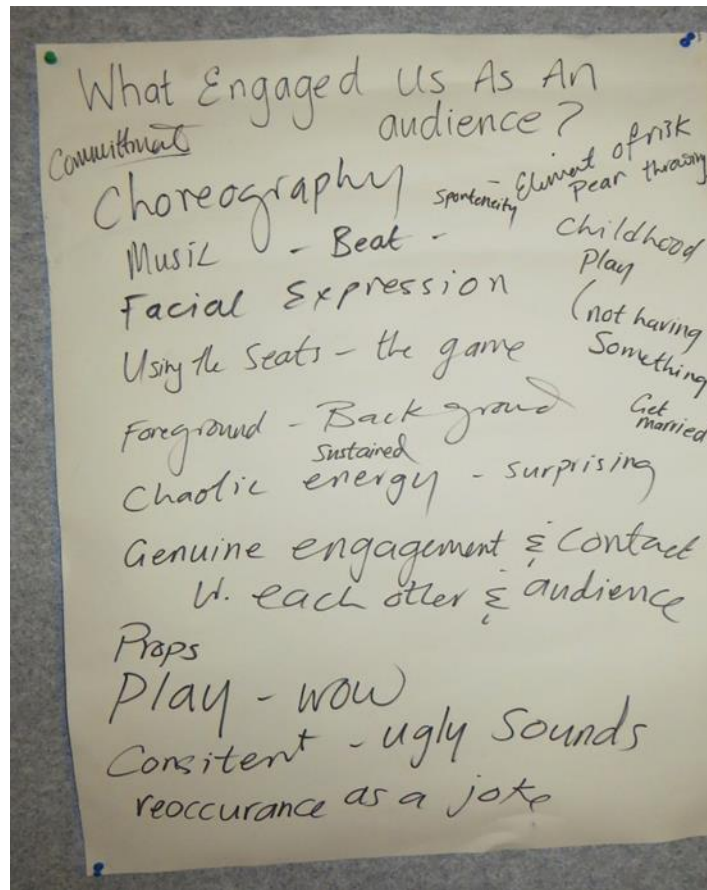 What Engaged Us As An
audience?
Committment
Choreography
Sponteneity
- Element of risk
Pear throwing
Music - Beat -
Childhood
Play
Facial Expression
(not having
Something
Using the Seats - the game
Get
married
Foreground - Back ground
Sustained
Chaotic energy - surprising
Genuine engagement & Contact
W. each other & audience
Props
Play - wow
Consitent - ugly Sounds
reoccurance as a joke